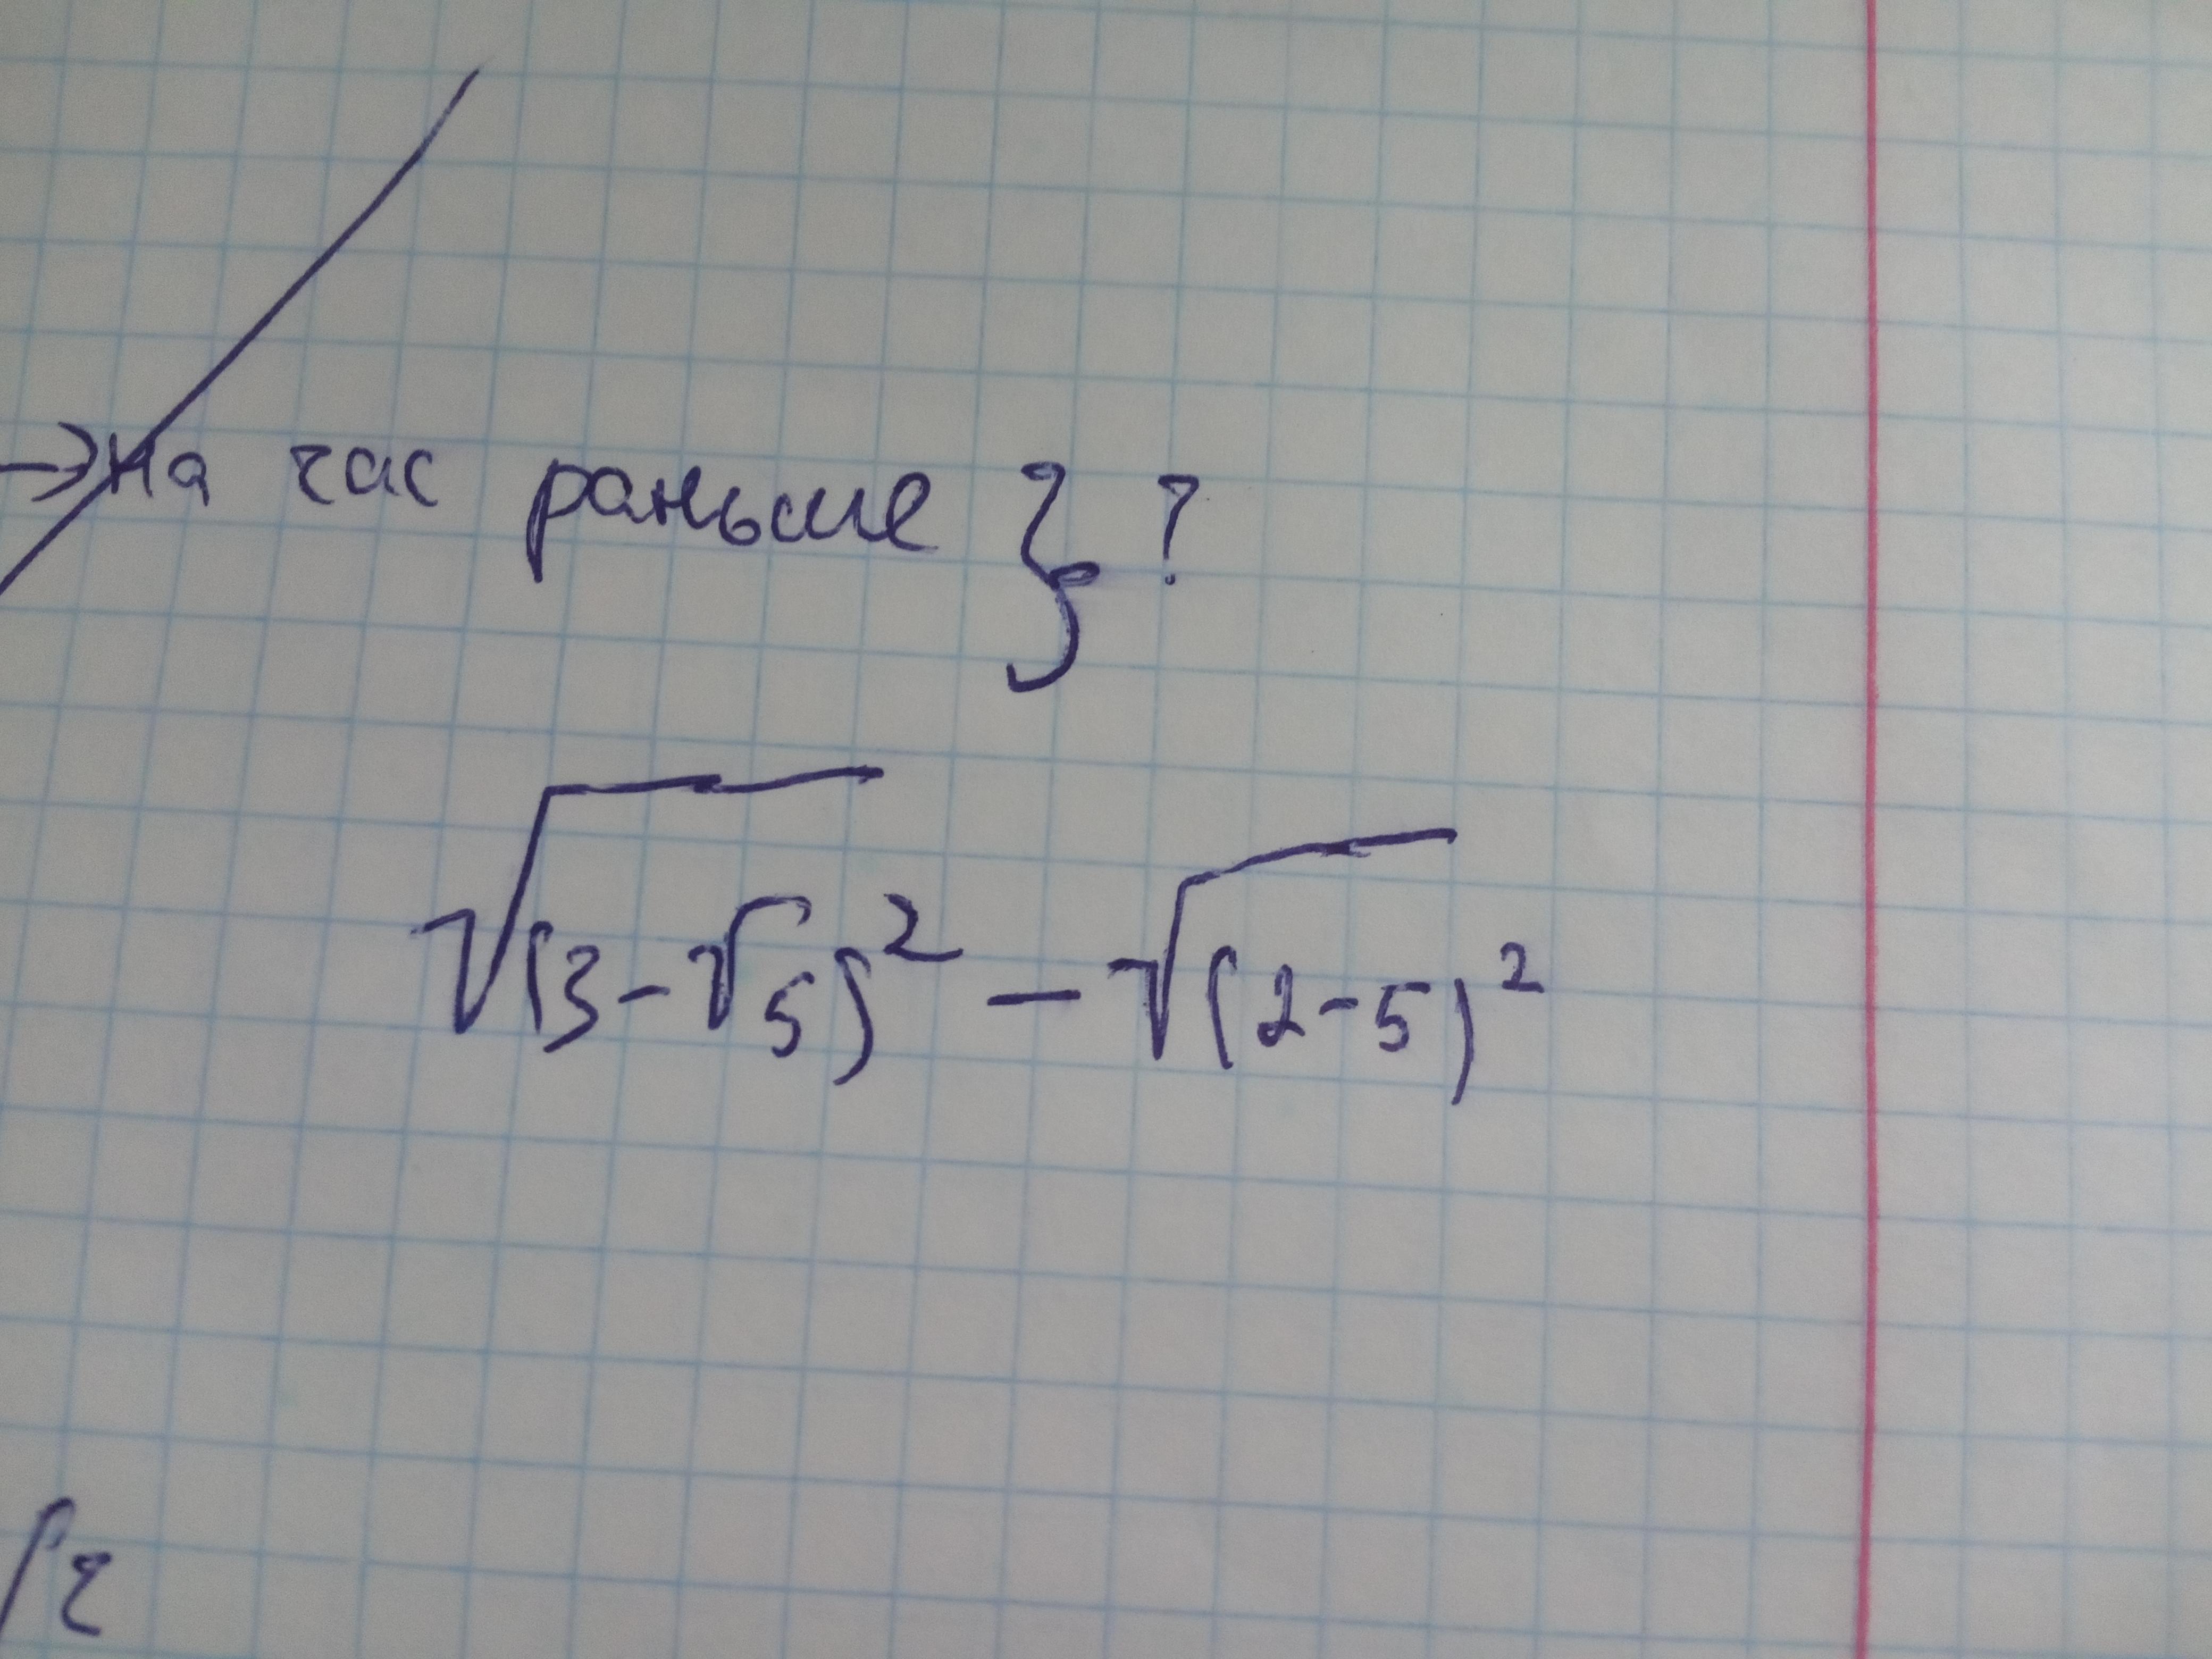 → на час раньше } ?
√(3-√5)² - √(2-5)²